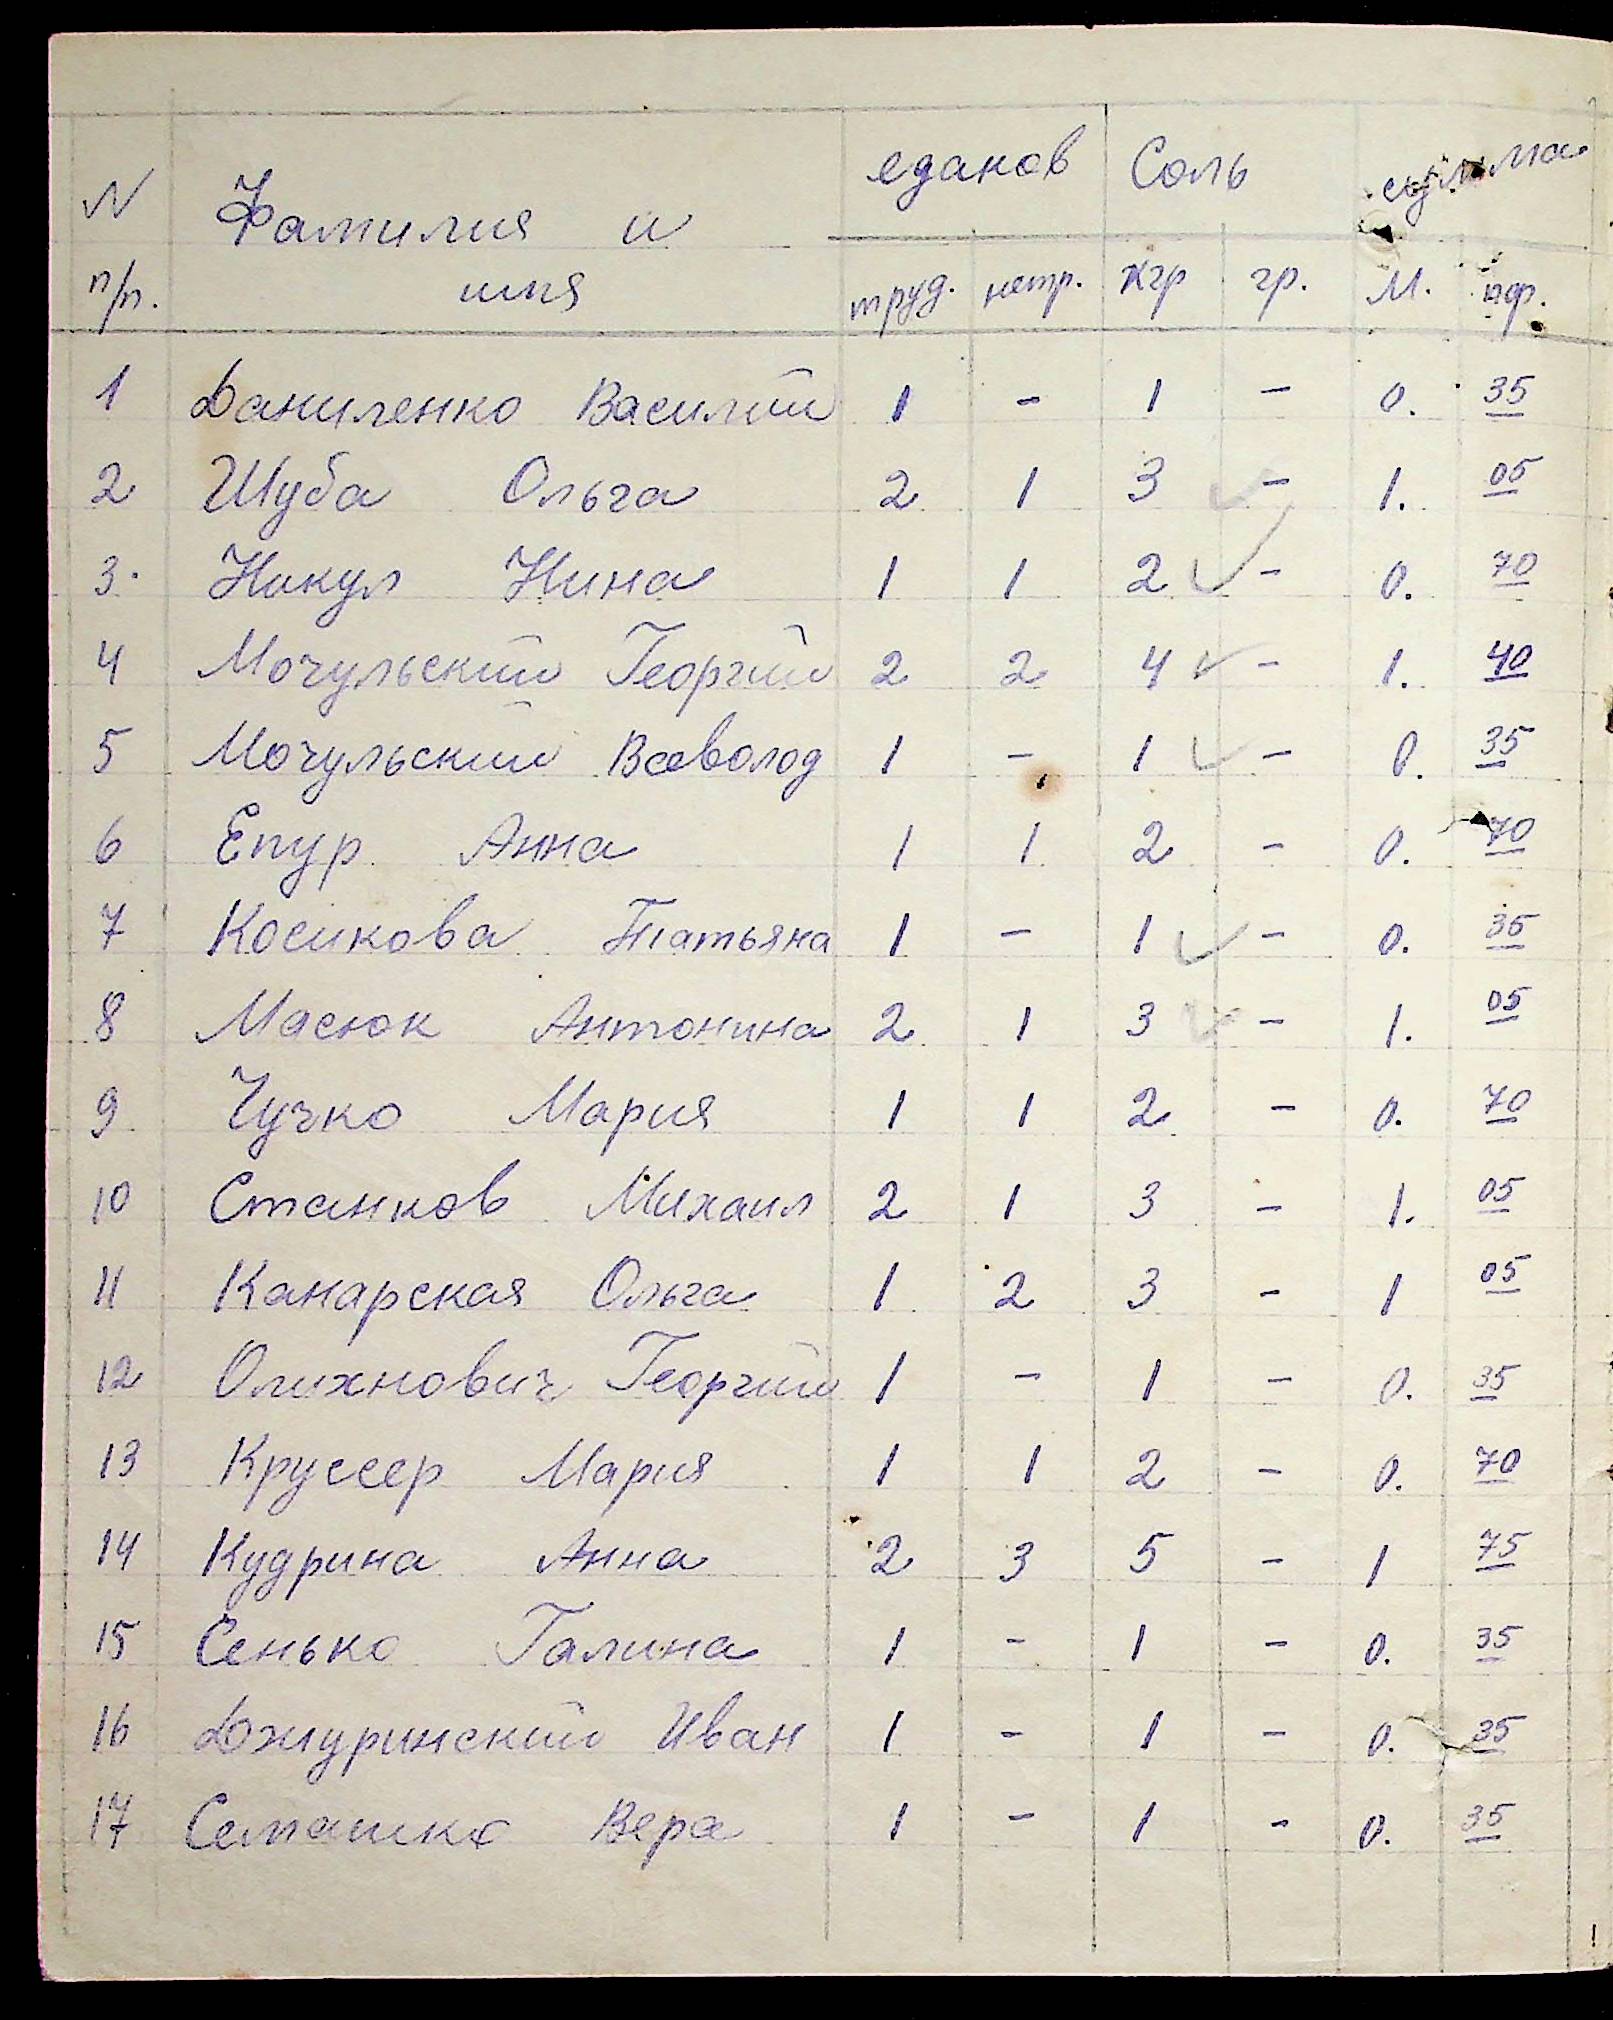 N Фамилия и едаков Соль сумма
п/п. имя труд. нетр. кгр гр. М. пф.
1 Даниленко Василий 1 - 1 - 0. 35
2 Шуба Ольга 2 1 3 - 1. 05
3. Никул Нина 1 1 2 - 0. 70
4 Мочульский Георгий 2 2 4 - 1. 40
5 Мочульский Всеволод 1 - 1 - 0. 35
6 Епур Анна 1 1 2 - 0. 70
7 Косикова Татьяна 1 - 1 - 0. 35
8 Масюк Антонина 2 1 3 - 1. 05
9 Чучко Мария 1 1 2 - 0. 70
10 Станков Михаил 2 1 3 - 1. 05
11 Канарская Ольга 1 2 3 - 1 05
12 Олихнович Георгий 1 - 1 - 0. 35
13 Круссер Мария 1 1 2 - 0. 70
14 Кудрина Анна 2 3 5 - 1 75
15 Сенько Галина 1 - 1 - 0. 35
16 Джуринский Иван 1 - 1 - 0. 35
17 Семашко Вера 1 - 1 - 0. 35